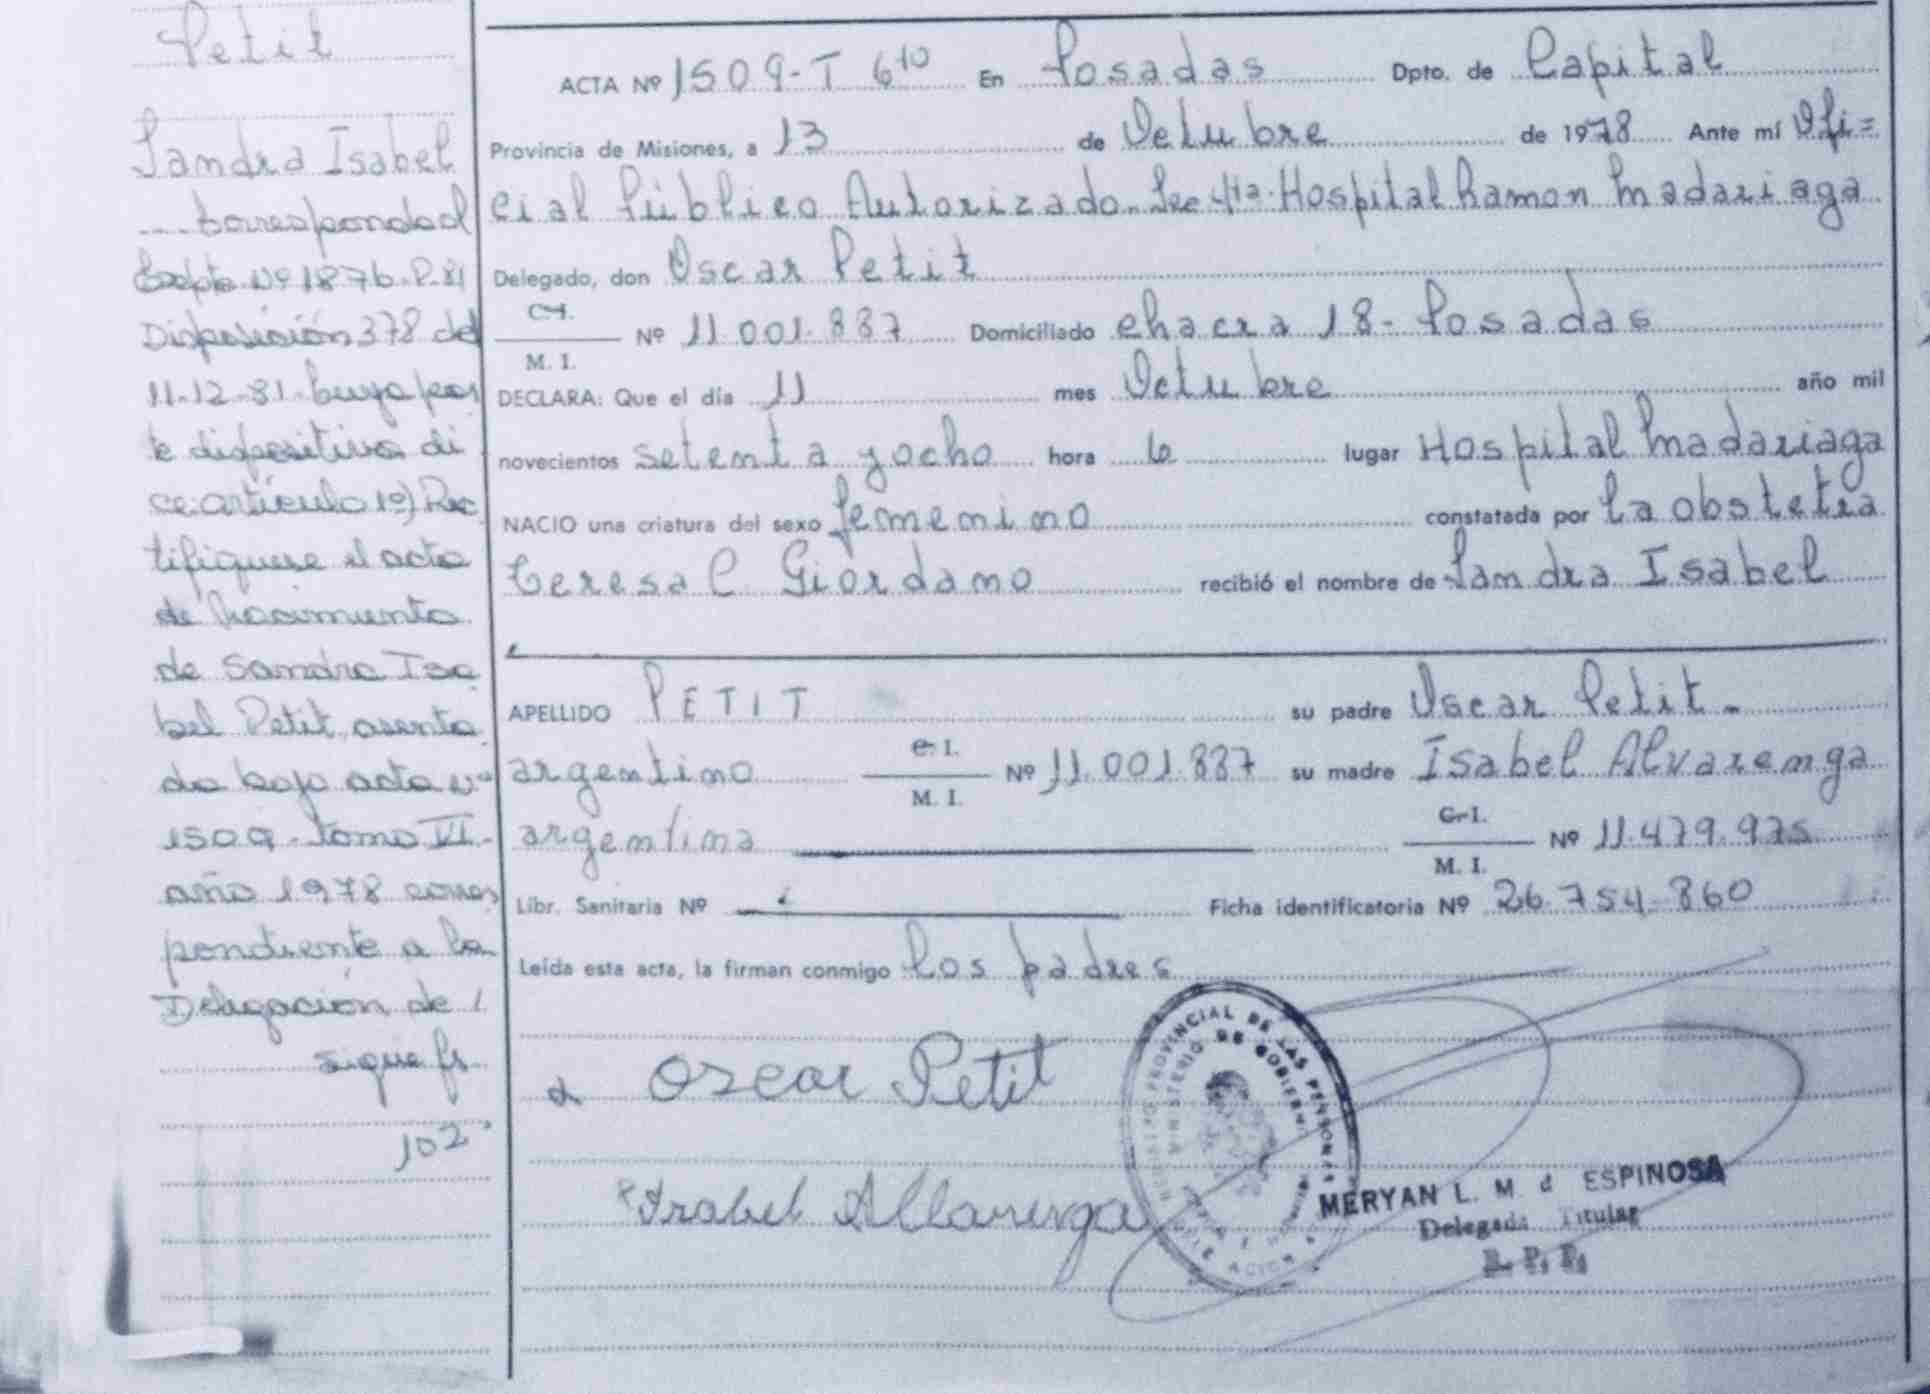 Petit
Sandra Isabel
... correspondad
Expte Nº 1876.P.81
Disposición 378 del
11-12-81. cuya par
te dispositiva di
ce: artículo 1º) Rec
tifíquese el acta
de Nacimiento
de Sandra Isa
bel Petit asenta
da bajo acta nº
1509 - tomo VI -
año 1978 corres
pondiente a la
Delegación de 1
sigue fs
102
ACTA Nº 1509-T 6to En Posadas Dpto. de Capital
Provincia de Misiones, a 13 de Octubre de 1978 Ante mí Ofi=
cial Público Autorizado. Sec 4ta. Hospital Ramon Madariaga
Delegado, don Oscar Petit
C.I.
M. I. Nº 11.001.887 Domiciliado chacra 18- Posadas
DECLARA: Que el día 11 mes Octubre año mil
novecientos setenta yocho hora 6 lugar Hospital Madariaga
NACIO una criatura del sexo femenino constatada por La obstetra
Teresa C Giordano recibió el nombre de Sandra Isabel
APELLIDO PETIT su padre Oscar Petit -
argentino C. I.
M. I. Nº 11.001.887 su madre Isabel Alvarenga
argentina C. I.
M. I. Nº 11.479.975
Libr. Sanitaria Nº Ficha identificatoria Nº 26.754.860
Leída esta acta, la firman conmigo Los padres
Oscar Petit
PROVINCIAL DE LAS PERSONAS
MINISTERIO DE GOBIERNO
Isabel Allarenga
MERYAN L. M d ESPINOSA
Delegada Titular